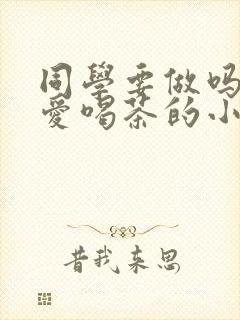 同學要做嗎
愛喝茶的小
昔我来思